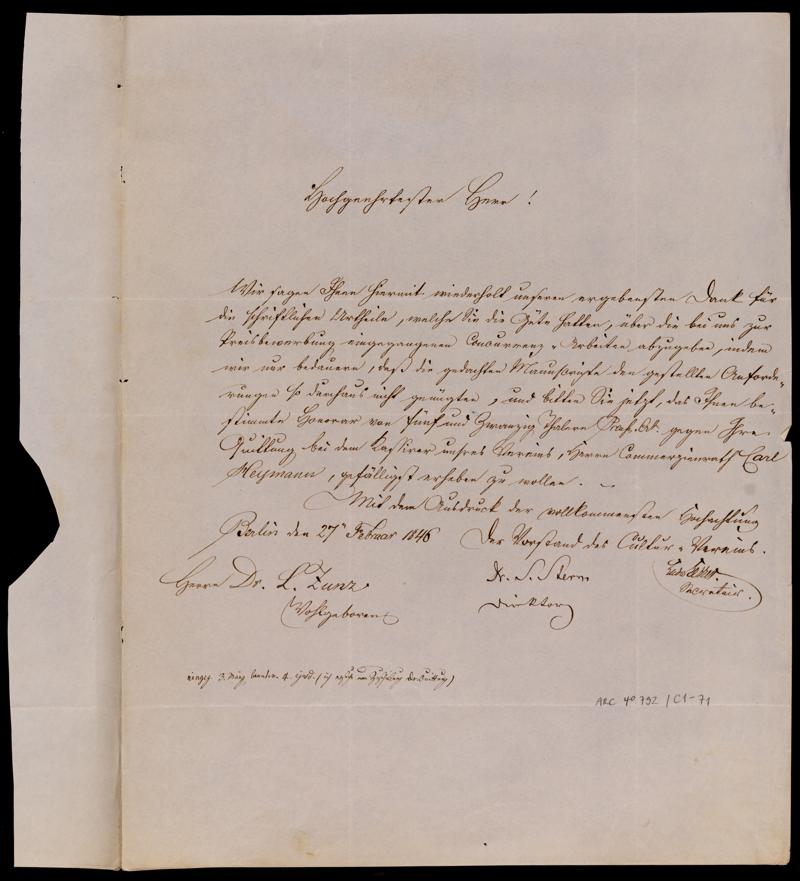 Hochgeehrtester Herr!
Wir sagen Ihnen hiermit wiederholt unseren ergebensten Dank für
die schriftlichen Urtheile, welche Sie die Güte hatten, über die bei uns zur
Preisbewerbung eingegangenen Concurrenz-Arbeiten abzugeben, indem
wir nur bedauern, daß die gedachten Manuscripte den gestellten Anforde-
rungen so durchaus nicht genügten, und bitten Sie jetzt, das Ihnen be-
stimmte Honorar von Fünf und Zwanzig Thalern gegen Ihre
Quittung bei dem Kassirer unsres Vereins, Herrn Commerzienrath Carl
Heymann, gefälligst erheben zu wollen.
Mit dem Ausdruck der vollkommensten Hochachtung
Berlin den 27n Februar 1846 Der Vorstand des Cultur-Vereins.
Herrn Dr. L. Zunz
Wohlgeboren
Dr. S. Stern
Direktor
Secretair.
eingeg. 3. März 4.
ARC 4° 792 / C1-71